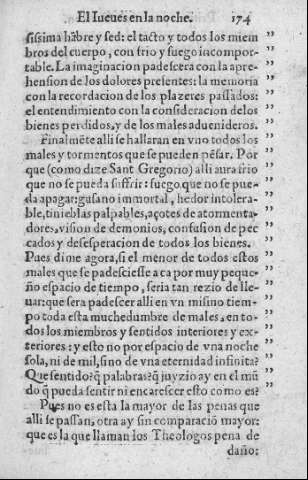 El Iueues en la noche. 174
sissima hãbre y sed: el tacto y todos los miem
bros del cuerpo, con frio y fuego incompor-
table. La imaginacion padescera con la apre-
hension de los dolores presentes: la memoria
con la recordacion de los plazeres passados:
el entendimiento con la consideracion de los
bienes perdidos, y de los males aduenideros.
Finalmẽte alli se hallaran en vno todos los
males y tormentos que se pueden pẽsar. Por
que (como dize Sant Gregorio) alli aura frio
que no se pueda suffrir: fuego que no se pue-
da apagar: gusano immortal, hedor intolera-
ble, tinieblas palpables, açotes de atormenta-
dores, vision de demonios, confusion de pec
cados y desesperacion de todos los bienes.
Pues dime agora, si el menor de todos estos
males que se padesciesse aca por muy peque-
ño espacio de tiempo, seria tan rezio de lle-
uar: que sera padescer alli en vn mismo tiem-
po toda esta muchedumbre de males, en to-
dos los miembros y sentidos interiores y ex-
teriores: y esto no por espacio de vna noche
sola, ni de mil, sino de vna eternidad infinita?
Que sentido? q̃ palabras? q̃ juyzio ay en el mũ
do q̃ pueda sentir ni encarescer esto como es?
Pues no es esta la mayor de las penas que
alli se passan, otra ay sin comparació mayor:
que es la que llaman los Theologos pena de
daño: